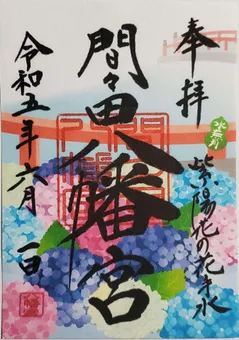 奉拝
水無月
紫陽花の花手水
間々田八幡宮
令和五年六月一日